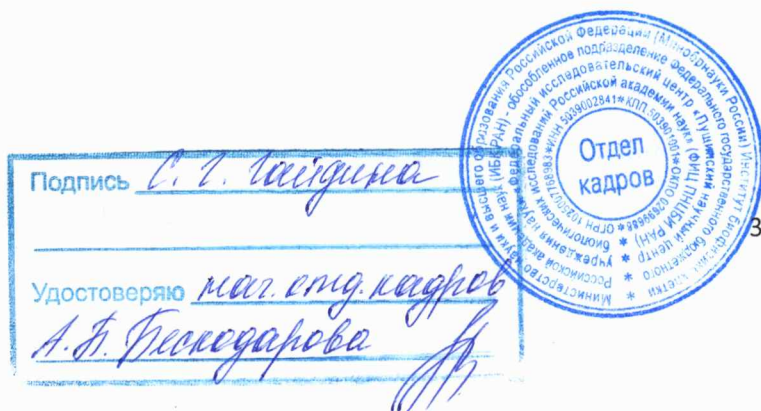 Подпись С. Г. Гайдина
Удостоверяю нач. отд. кадров
А. Б. Бескодарова
Министерство науки и высшего образования Российской Федерации (Минобрнауки России) Институт биофизики клетки
Российской академии наук (ИБК РАН) - обособленное подразделение Федерального государственного бюджетного
учреждения науки «Федеральный исследовательский центр «Пущинский научный центр
биологических исследований Российской академии наук» (ФИЦ ПНЦБИ РАН)
ИНН 5039002841 * КПП 503901001 * ОКПО
Отдел
кадров
3